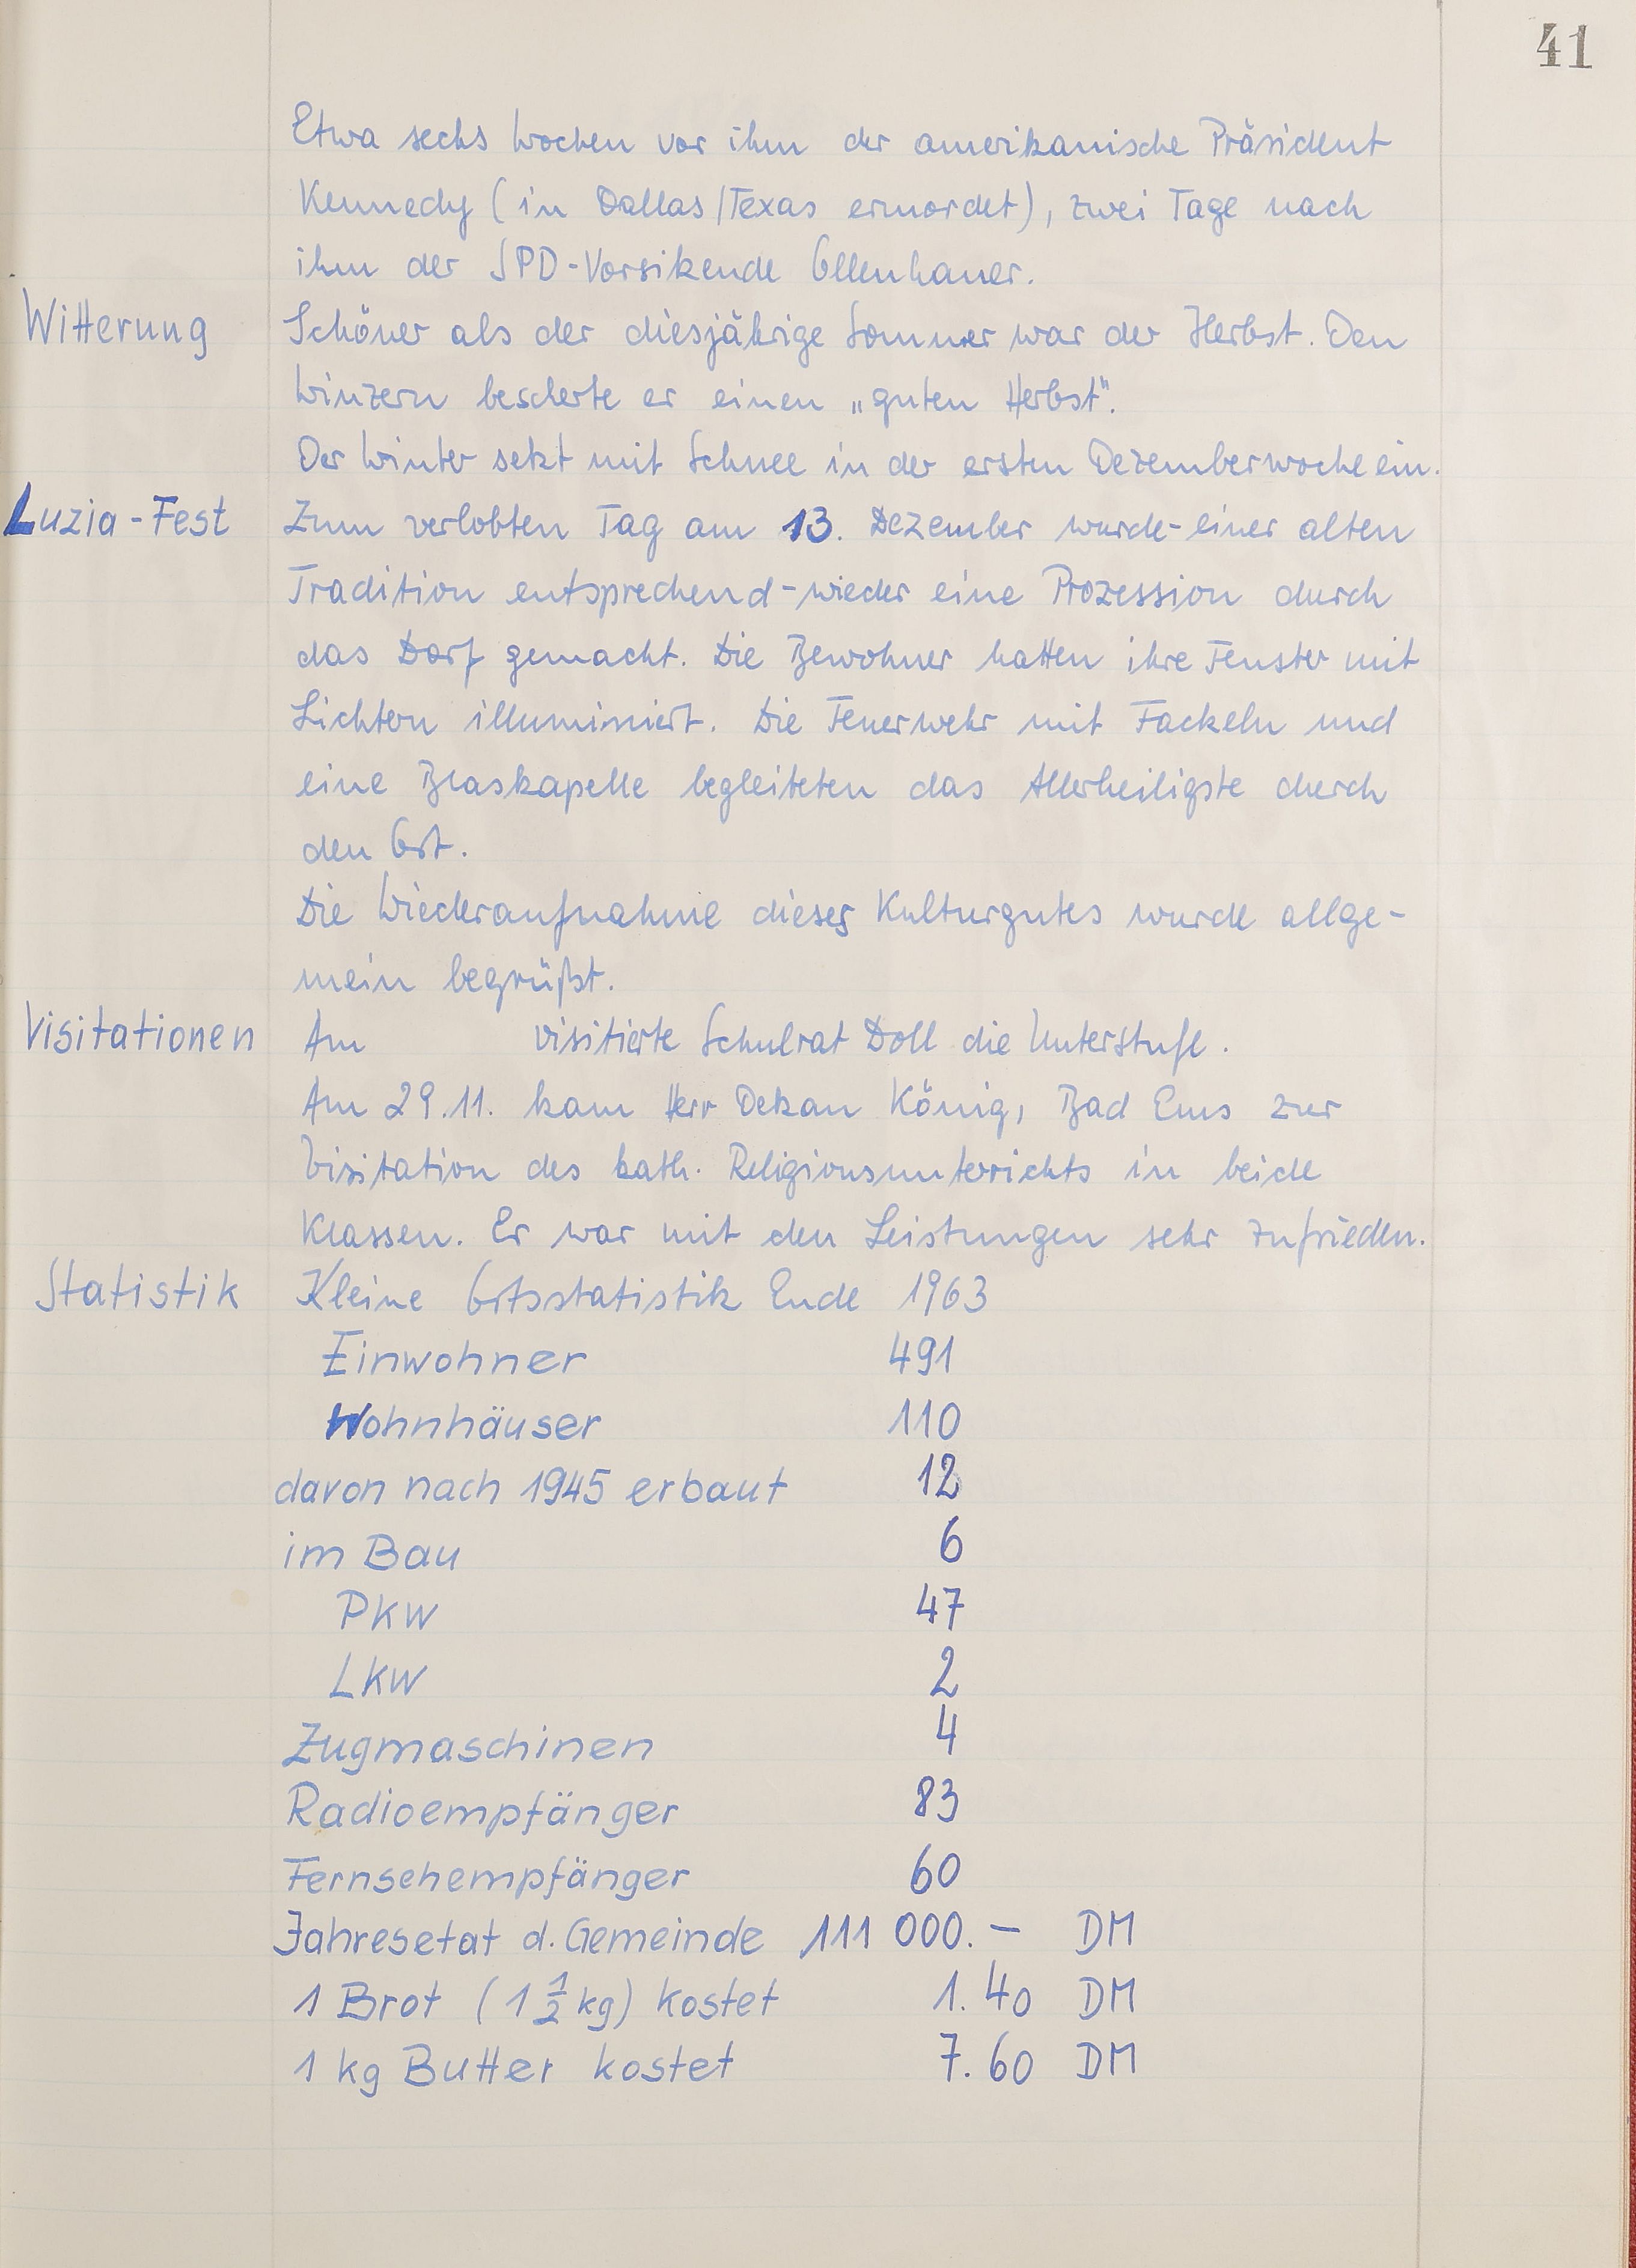 41
Etwa sechs Wochen vor ihm der amerikanische Präsident
Kennedy (in Dallas/Texas ermordet), zwei Tage nach
ihm der SPD-Vorsitzende Ollenhauer.
Witterung Schöner als der diesjährige Sommer war der Herbst. Den
Winzern bescherte er einen „guten Herbst".
Der Winter setzt mit Schnee in der ersten Dezemberwoche ein.
Luzia-Fest Zum verlobten Tag am 13. Dezember wurde-einer alten
Tradition entsprechend-wieder eine Prozession durch
das Dorf gemacht. Die Bewohner hatten ihre Fenster mit
Lichtern illuminiert. Die Feuerwehr mit Fackeln und
eine Blaskapelle begleiteten das Allerheiligste durch
den Ort.
Die Wiederaufnahme dieses Kulturgutes wurde allge-
mein begrüßt.
Visitationen Am visitierte Schulrat Doll die Unterstufe.
Am 29.11. kam Herr Dekan König, Bad Ems zur
Visitation des kath. Religionsunterrichts in beide
Klassen. Er war mit den Leistungen sehr zufrieden.
Statistik Kleine Ortsstatistik Ende 1963
Einwohner 491
Wohnhäuser 110
davon nach 1945 erbaut 12
im Bau 6
PKW 47
LKW 2
Zugmaschinen 4
Radioempfänger 83
Fernsehempfänger 60
Jahresetat d. Gemeinde 111 000.— DM
1 Brot (1 1/2 kg) kostet 1.40 DM
1 kg Butter kostet 7.60 DM